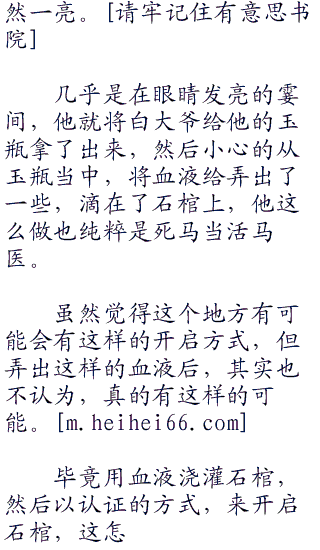 然一亮。[请牢记住有意思书
院]
几乎是在眼睛发亮的霎
间，他就将白大爷给他的玉
瓶拿了出来，然后小心的从
玉瓶当中，将血液给弄出了
一些，滴在了石棺上，他这
么做也纯粹是死马当活马
医。
虽然觉得这个地方有可
能会有这样的开启方式，但
弄出这样的血液后，其实也
不认为，真的有这样的可
能。[m.heihei66.com]
毕竟用血液浇灌石棺，
然后以认证的方式，来开启
石棺，这怎